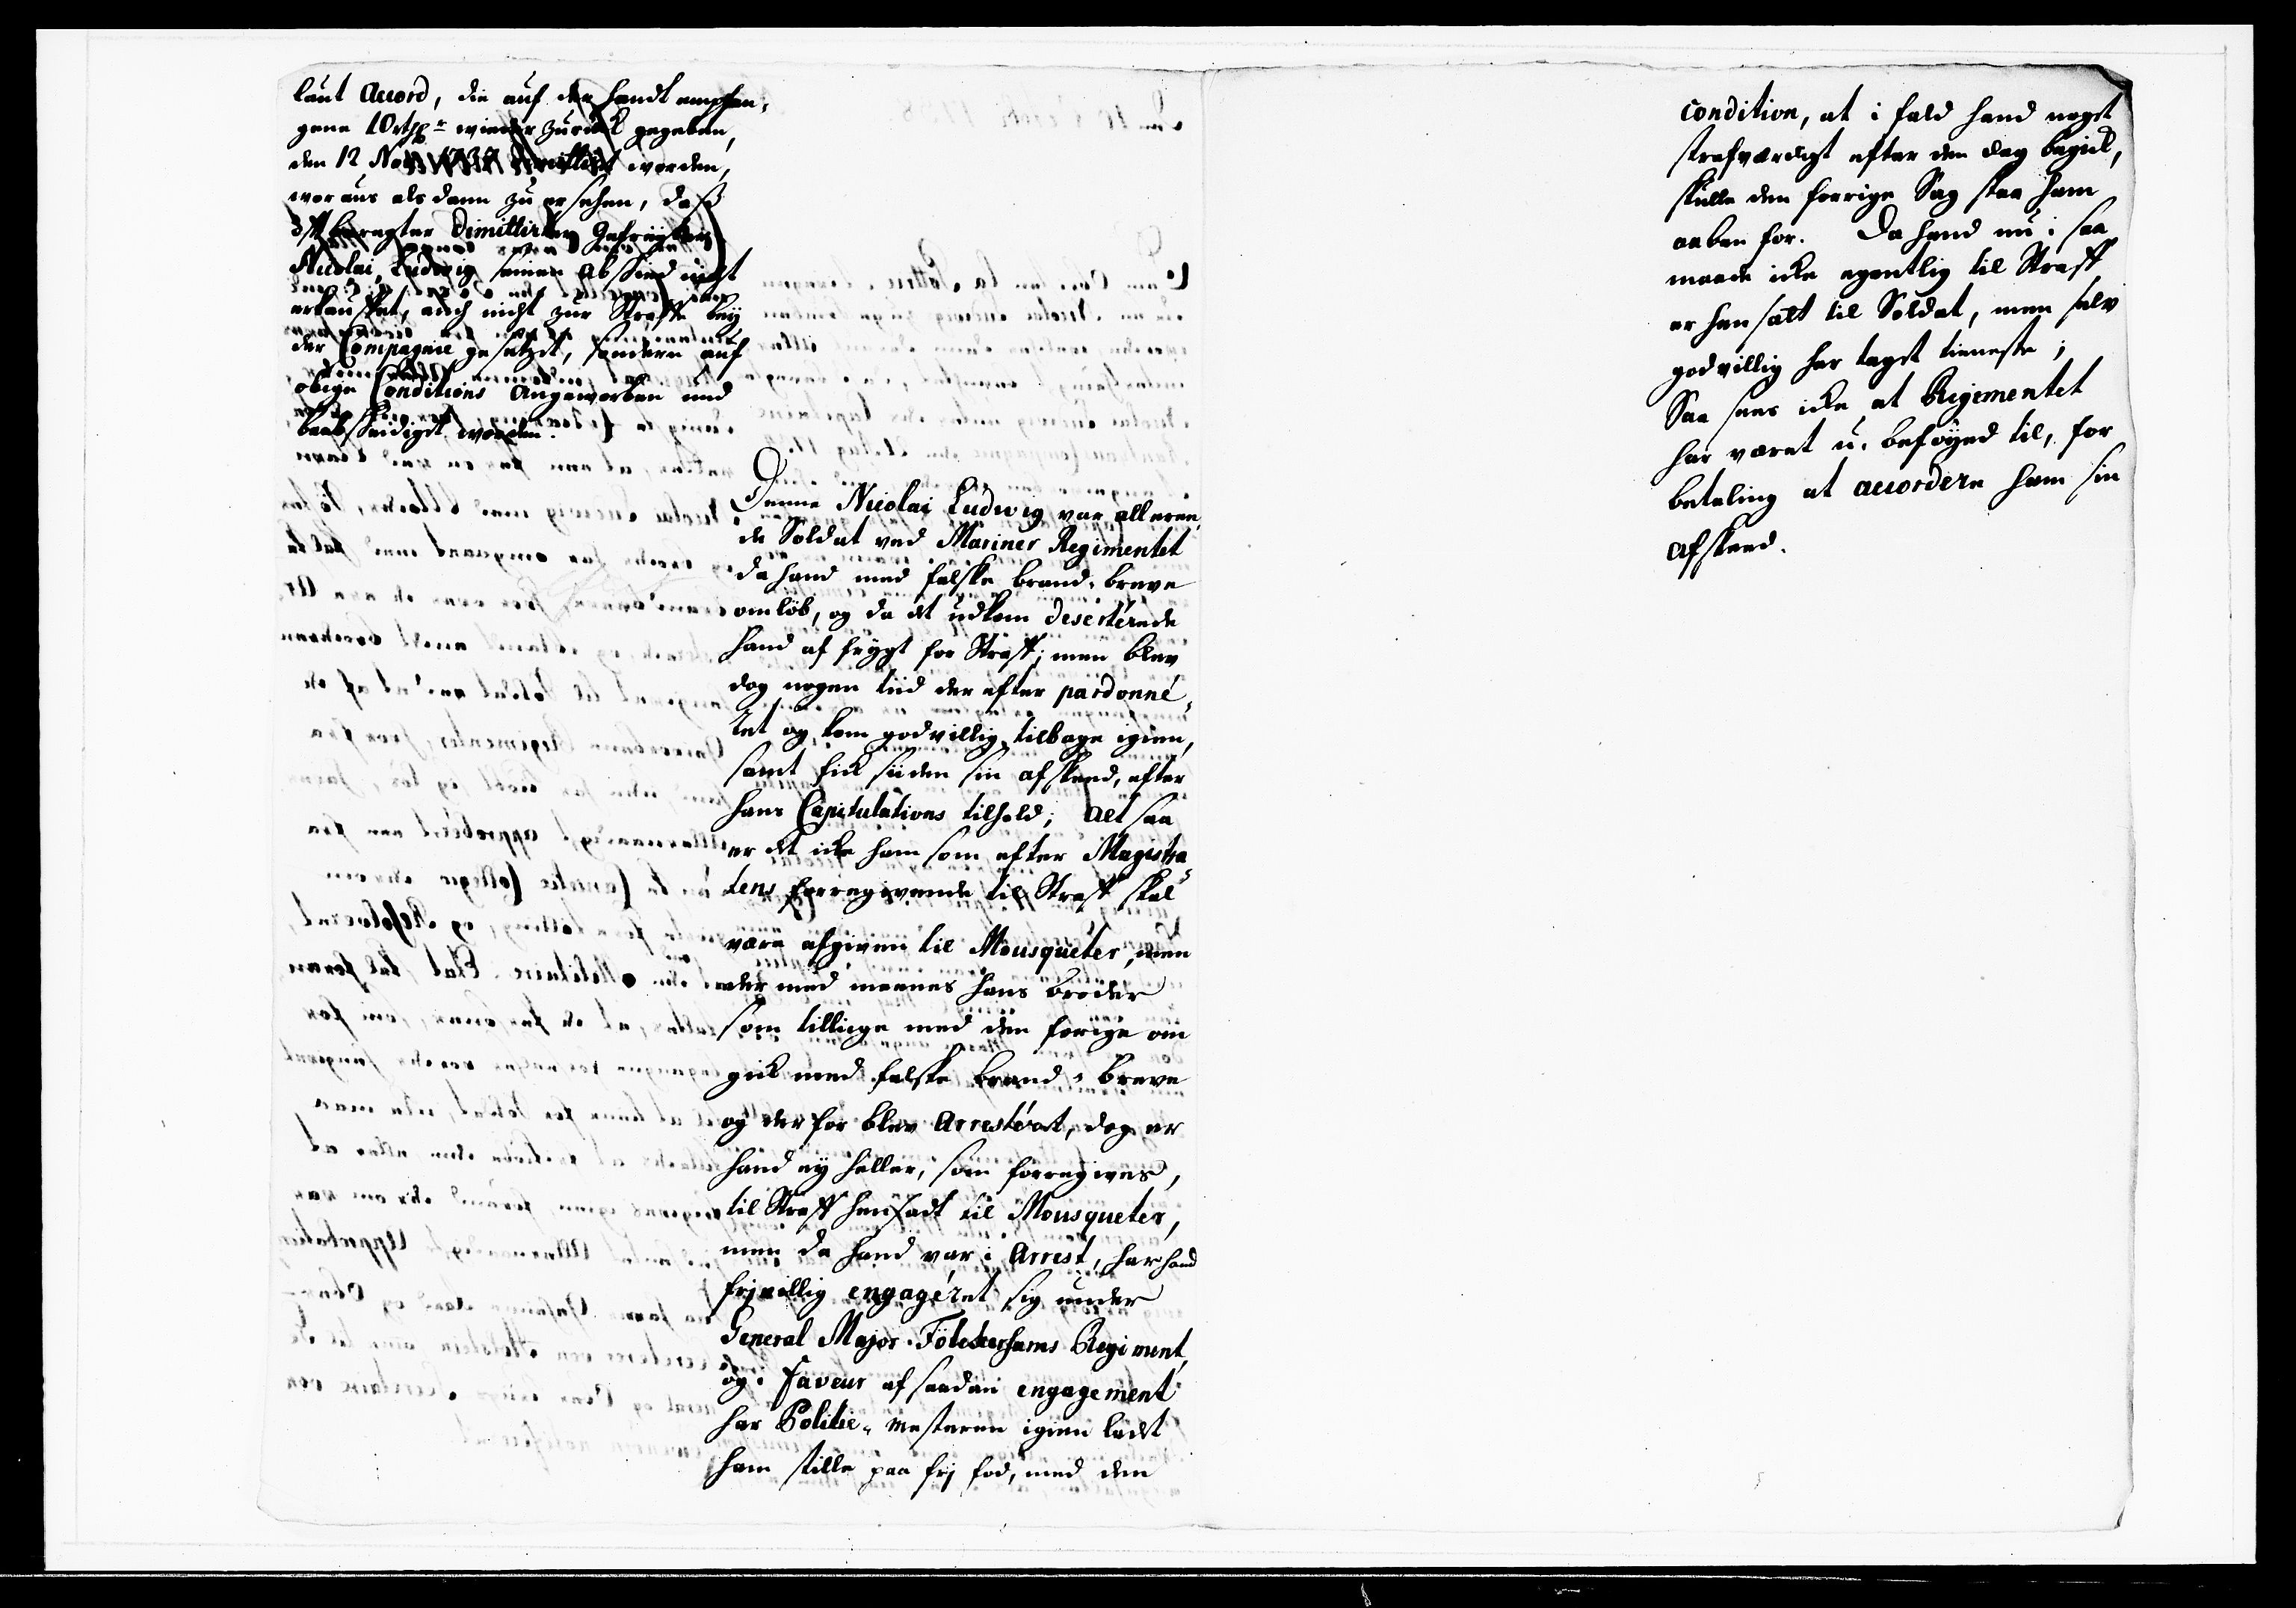 laut Accord, die auf der Handt empfan-
gene 10 rthlr wieder zurück gegeben,
den 12 Nov. 1737 dimittiret worden,
woraus als dann zu ersehen, daß
offt beregter Dimittirter Gefreyter
Nicolai Ludwig seinen Abschied nicht
erkauffet, auch nicht zur Straffe bey
der Compagnie gesetzet, sondern auf
obige Conditions Angeworben und
beabscheidiget worden.
Denne Nicolai Ludwig var alleree-
de Soldat ved Mariner Regimentet
da hand med falske brand-breve
omløb, og da det udkom deserterede
hand af frygt for Straff; men blev
dog nogen tiid der efter pardonne-
ret og kom godvillig tilbage igien,
samt fick siiden sin afskeed, efter
hans Capitulations tilhold; Alt saa
er det icke ham som efter Magistra-
tens foregivende til Straff skal
være afgiven til Mousqueter, men
der med meenes hans broder
som tillige med den forige om
gick med falske brand-breve
og der for blev Arresteret, dog er
hand ey heller, som foregives,
til Straff hensadt til Mousqueter,
men da hand var i Arrest, har hand
frivillig engageret sig under
General Major Fölckersahms Regiment,
og i Faveur af saadan engagement
har Politie-Mesteren igien ladt
ham stille paa fri fod, med den
condition, at i fald hand noget
strafværdigt efter den dag begick,
skulle den forrige Sag staa ham
aaben for. Da hand nu i saa
maade icke egentlig til Straff
er hensatt til Soldat, men selv
godvillig har taget tieneste;
Saa sees icke at Regimentet
har været u-beføyed til, for
betaling at accordere ham sin
Afskeed.